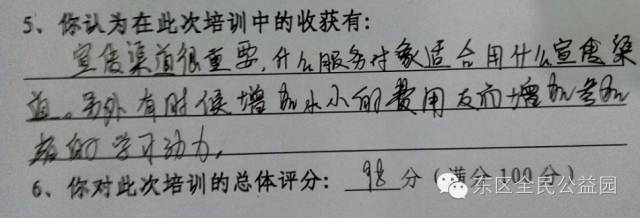 5、你认为在此次培训中的收获有:
宣传渠道很重要,什么服务对象适合用什么宣传渠
道。另外有时候增加小小的费用反而增加参加
者的学习动力。
6、你对此次培训的总体评分: 98 分(满分100分)
东区全民公益园